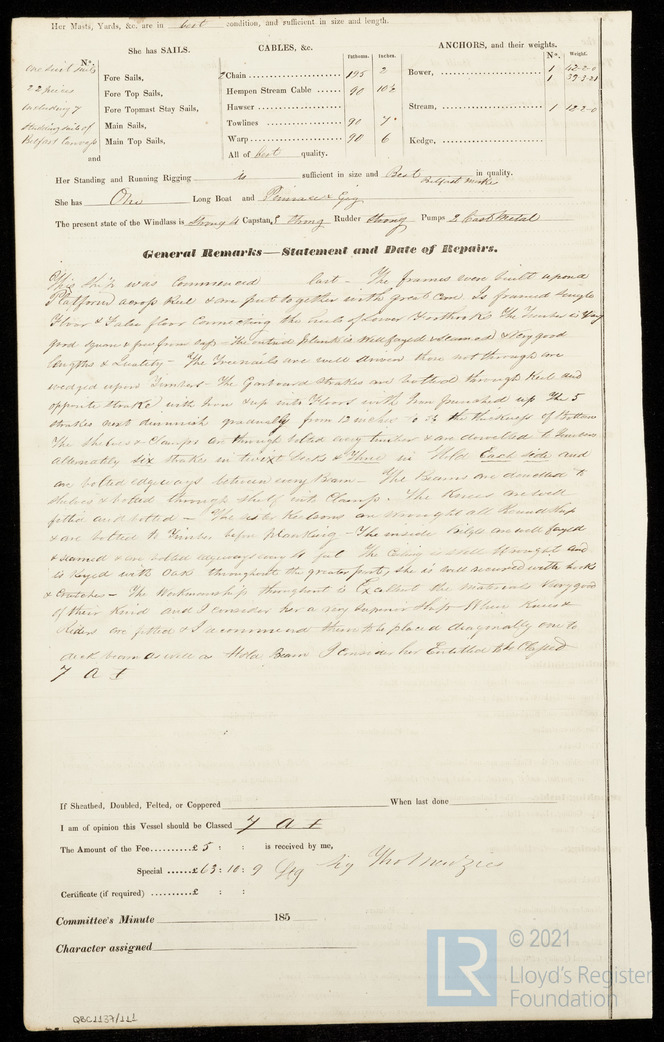 Her Masts, Yards, &c. are in best condition, and sufficient in size and length.
She has SAILS. CABLES, &c. ANCHORS, and their weights.
N°. Fathoms. Inches. N°. Weight.
One suit Sails Fore Sails, 2 Chain 195 2 Bower, 1 42-2-0
22 pieces Fore Top Sails, Hempen Stream Cable 90 10½ 1 39-3-21
including 7 Fore Topmast Stay Sails, Hawser Stream, 1 12-2-0
Studding sails of Main Sails, Towlines 90 7
Belfast Canvass Main Top Sails, Warp 90 6 Kedge,
and All of best quality.
Her Standing and Running Rigging is sufficient in size and Best in quality.
Belfast make
She has One Long Boat and Pinnace & Gig
The present state of the Windlass is Strong & Capstan, Strong Rudder Strong Pumps 2 Cast Metal
General Remarks—Statement and Date of Repairs.
This Ship was Commenced last - The frames were built upon a
Platform across Keel & are put together with great Care Is framed Single
Floor & false floor Connecting the heels of Lower Foothooks The Timber is Very
good square & free from sap - The outside plank is Well fayed & Very good
lengths & Quality - The Treenails are well driven those not through are
wedged upon Timbers - The Garboard Strakes are bolted through Keel and
opposite strake with Iron & up into Floors with Iron The 5
strakes next diminish gradually from 12 inches to the thickness of Bottom
The Shelves & Clamps are through bolted every timber & are dovetailed to Timbers
alternately six strakes in twixt Decks & Three in Hold Each Side and
are bolted edgeways between every Beam - The Beams are dovetailed to
Shelves & bolted through Shelf into Clamp. The Knees are well
fitted and bolted - The sister Keelsons are
& are bolted to Timber before planking - The inside Bilges are well fayed
& are bolted edgeways every feet The Ceiling is well wrought and
is Keyed with Oak throughout the greater part, she is well secured with hooks
& Crutches - The Workmanship throughout is Excellent the materials Very good
of their Kind and I consider her a very superior Ship - Where Knees &
Riders are fitted & I recommend them to be placed diagonally one to
deck beam as well as Hold Beam I consider her Entitled to be Classed
7 A 1
If Sheathed, Doubled, Felted, or Coppered When last done
I am of opinion this Vessel should be Classed 7 A 1
The Amount of the Fee £ 5 : : is received by me,
Special £ 63 : 10 : 9 Sig Thos Menzies
Certificate (if required) £ : :
Committee's Minute 185
Character assigned
QBC1137/111
LR
© 2021
Lloyd's Register
Foundation